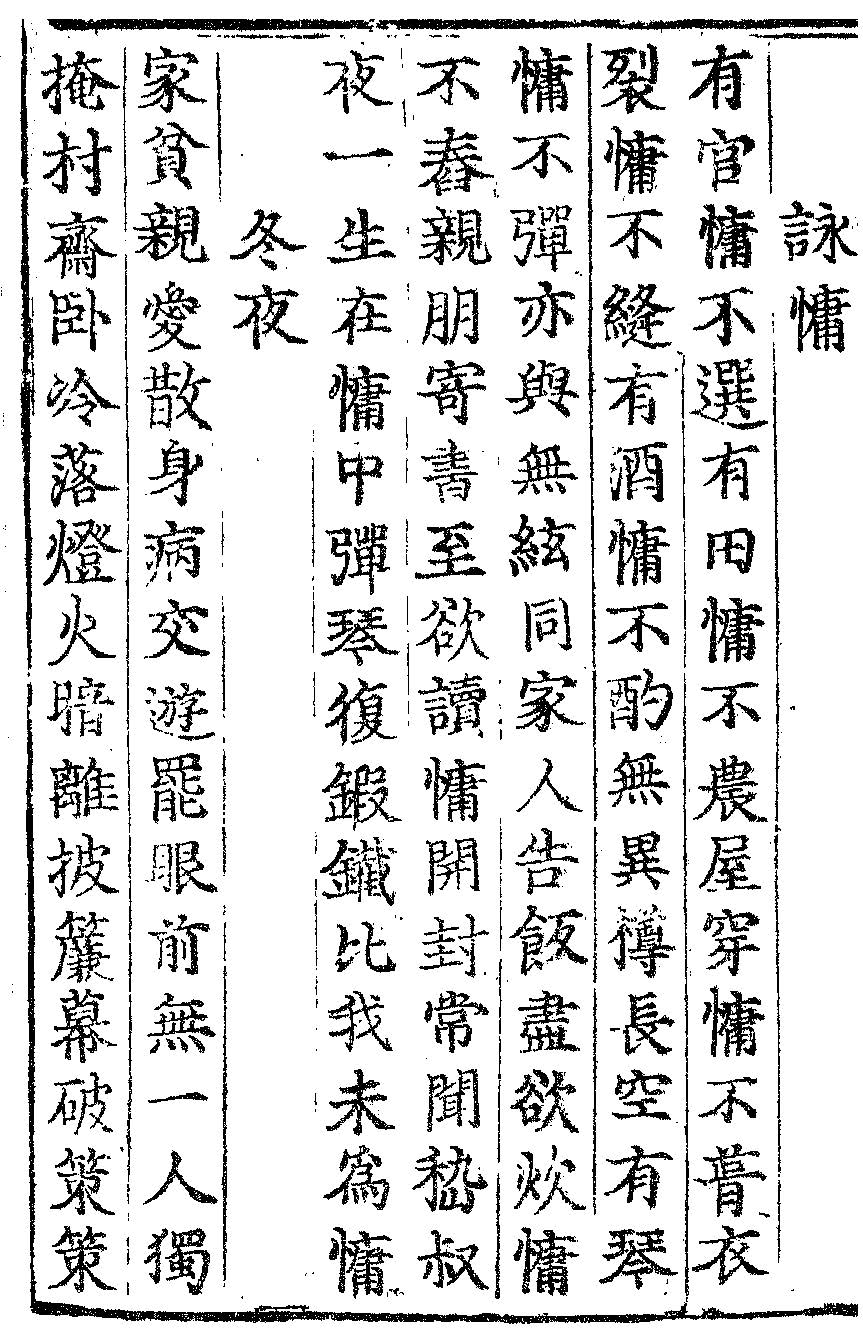 詠慵
有官慵不選有田慵不農屋穿慵不葺衣
裂慵不縫有酒慵不酌無異樽長空有琴
慵不彈亦與無絃同家人告飯盡欲炊慵
不舂親朋寄書至欲讀慵開封常聞嵇叔
夜一生在慵中彈琴復鍛鐵比我未爲慵
冬夜
家貧親愛散身病交遊罷眼前無一人獨
掩村齋卧冷落燈火暗離披簾幕破策策